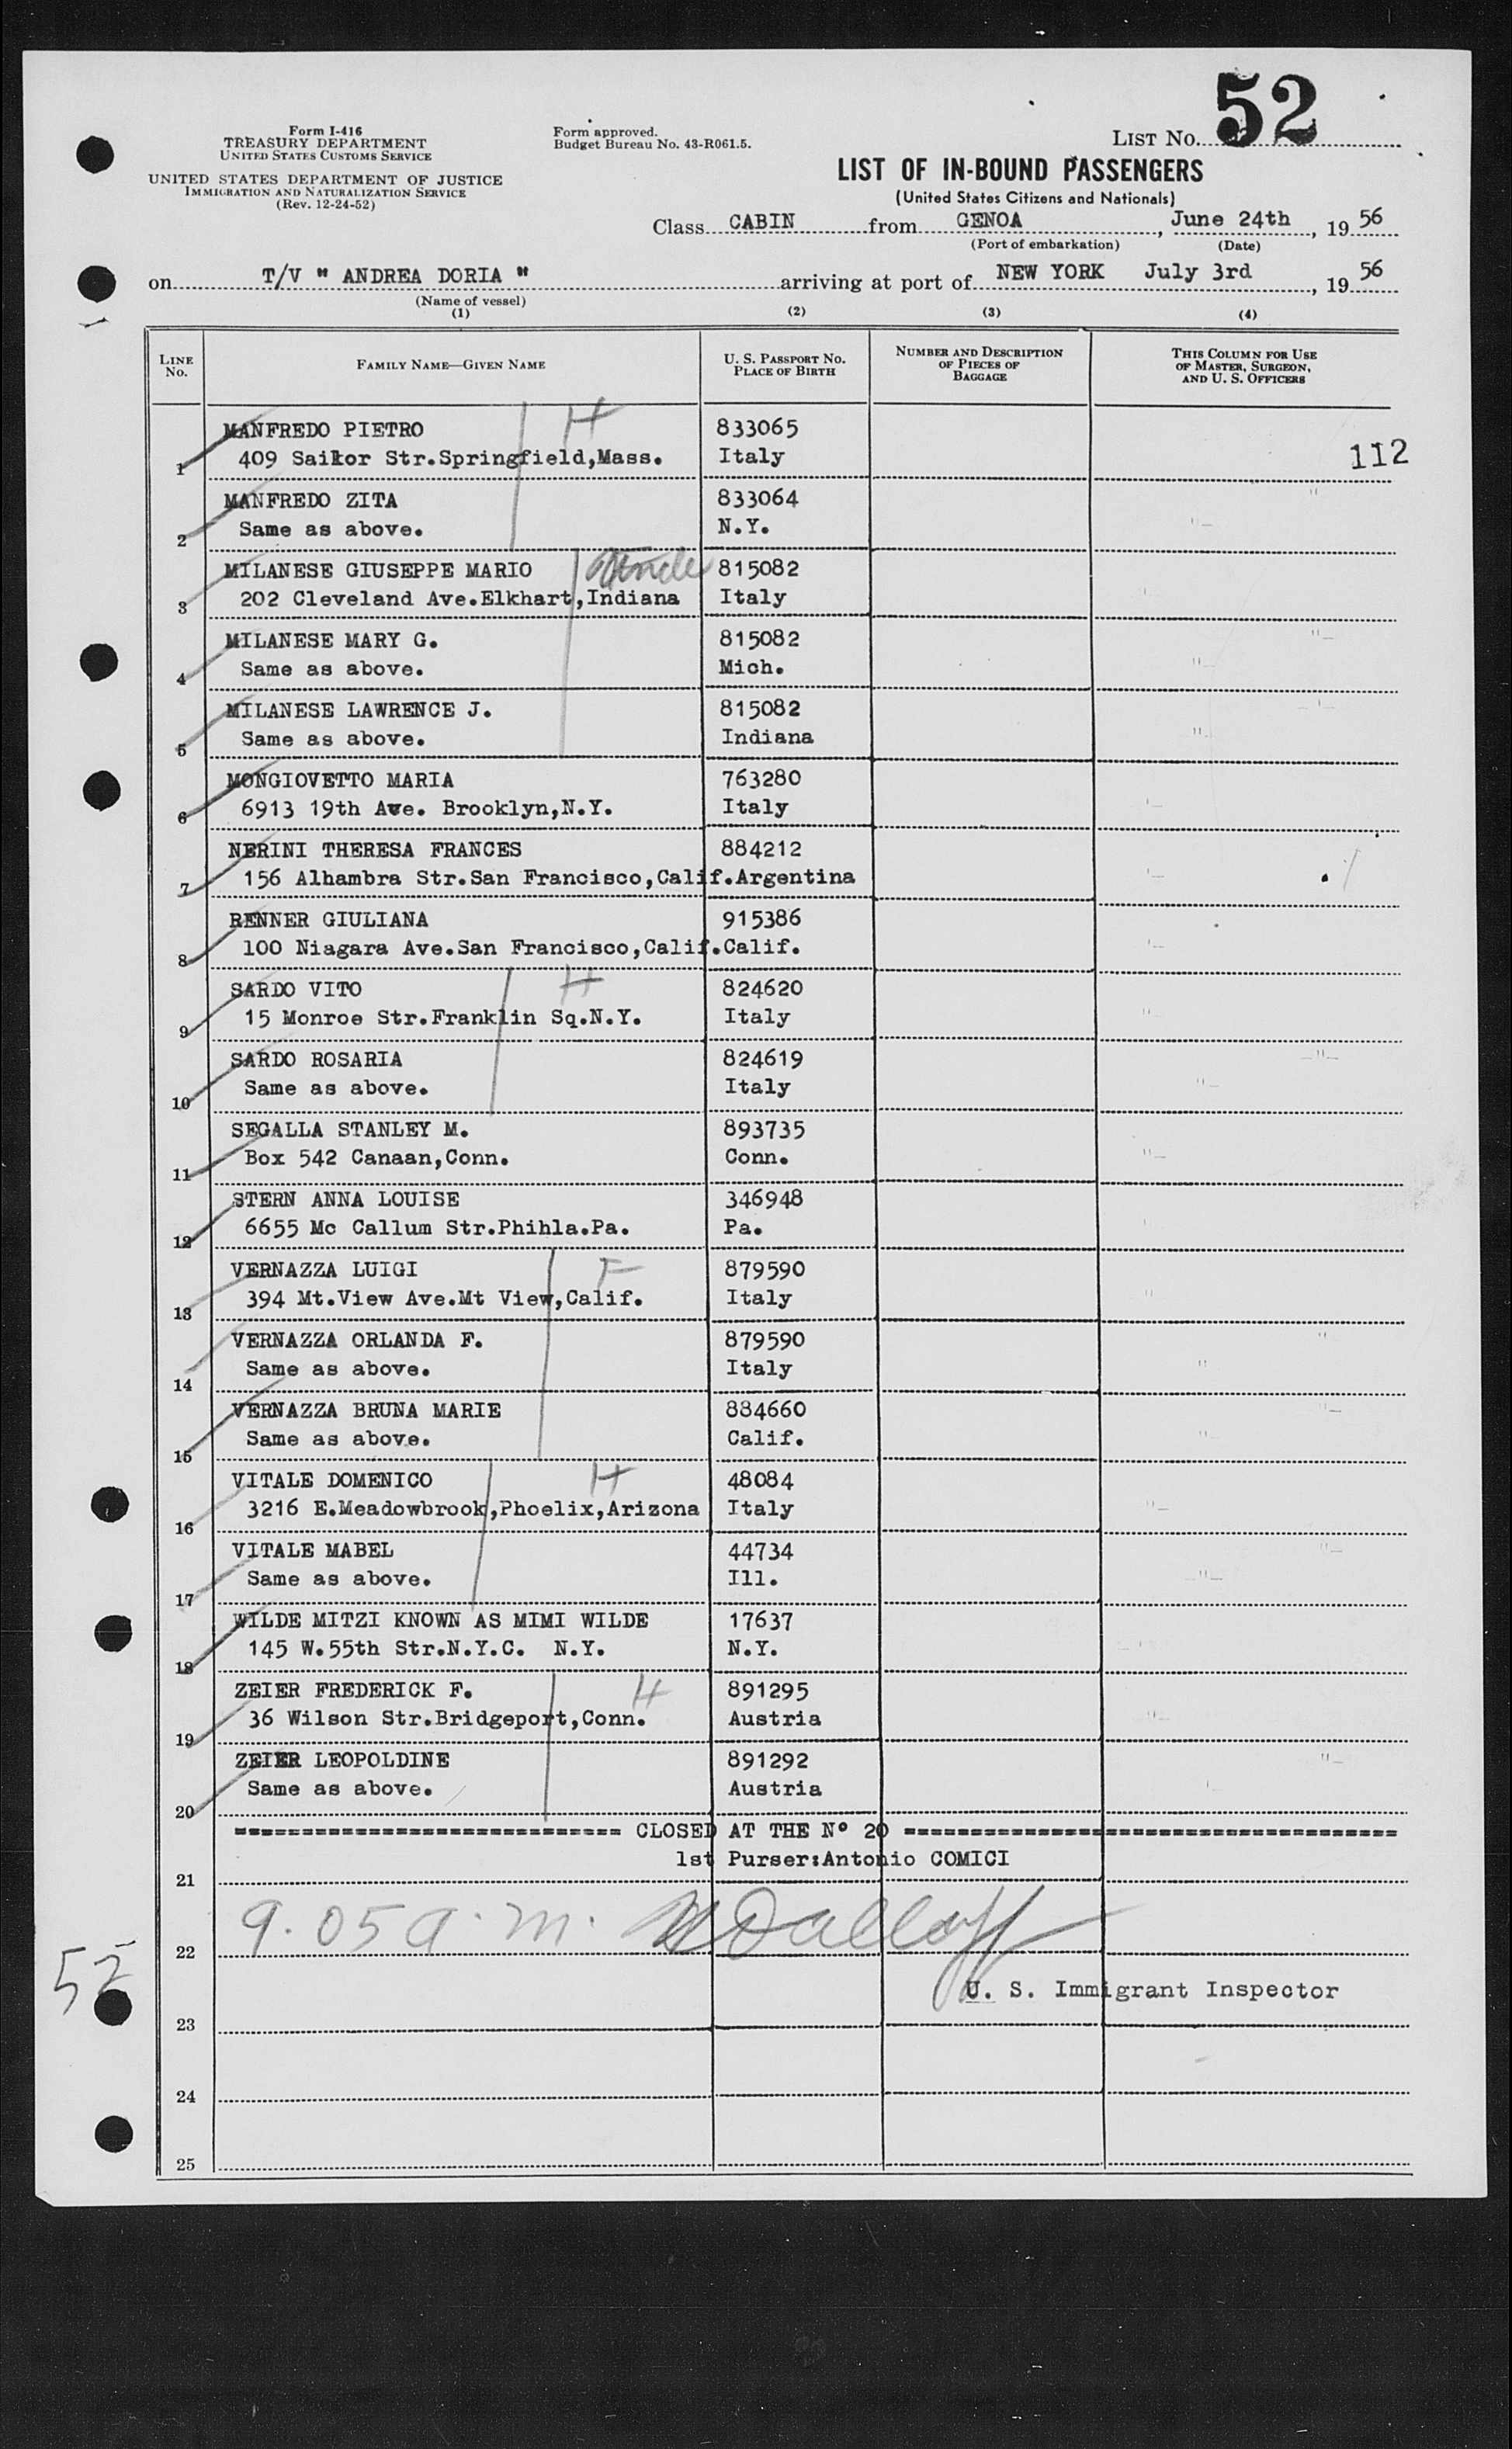 52
Form I-416
TREASURY DEPARTMENT
UNITED STATES CUSTOMS SERVICE
UNITED STATES DEPARTMENT OF JUSTICE
IMMIGRATION AND NATURALIZATION SERVICE
(Rev. 12-24-52)
Form approved.
Budget Bureau No. 43-R061.5.
LIST No.
LIST OF IN-BOUND PASSENGERS
(United States Citizens and Nationals)
Class CABIN from GENOA, June 24th, 19 56
(Port of embarkation) (Date)
on T/V " ANDREA DORIA " arriving at port of NEW YORK July 3rd, 19 56
(Name of vessel)
(1) (2) (3) (4)
LINE No. FAMILY NAME—GIVEN NAME U. S. PASSPORT No. PLACE OF BIRTH NUMBER AND DESCRIPTION OF PIECES OF BAGGAGE THIS COLUMN FOR USE OF MASTER, SURGEON, AND U. S. OFFICERS
MANFREDO PIETRO H 833065
1 409 Sailor Str.Springfield,Mass. Italy 112
MANFREDO ZITA 833064
2 Same as above. N.Y.
MILANESE GIUSEPPE MARIO 815082
3 202 Cleveland Ave.Elkhart,Indiana Italy
MILANESE MARY G. 815082
4 Same as above. Mich.
MILANESE LAWRENCE J. 815082
5 Same as above. Indiana
MONGIOVETTO MARIA 763280
6 6913 19th Ave. Brooklyn,N.Y. Italy
NERINI THERESA FRANCES 884212
7 156 Alhambra Str.San Francisco,Calif.Argentina
RENNER GIULIANA 915386
8 100 Niagara Ave.San Francisco,Calif.Calif.
SARDO VITO H 824620
9 15 Monroe Str.Franklin Sq.N.Y. Italy
SARDO ROSARIA 824619
10 Same as above. Italy
SEGALLA STANLEY M. 893735
11 Box 542 Canaan,Conn. Conn.
STERN ANNA LOUISE 346948
12 6655 Mc Callum Str.Phihla.Pa. Pa.
VERNAZZA LUIGI F 879590
13 394 Mt.View Ave.Mt View,Calif. Italy
VERNAZZA ORLANDA F. 879590
14 Same as above. Italy
VERNAZZA BRUNA MARIE 884660
15 Same as above. Calif.
VITALE DOMENICO H 48084
16 3216 E.Meadowbrook,Phoelix,Arizona Italy
VITALE MABEL 44734
17 Same as above. Ill.
WILDE MITZI KNOWN AS MIMI WILDE 17637
18 145 W.55th Str.N.Y.C. N.Y. N.Y.
ZEIER FREDERICK F. H 891295
19 36 Wilson Str.Bridgeport,Conn. Austria
ZEIER LEOPOLDINE 891292
20 Same as above. Austria
============================= CLOSED AT THE Nº 20 =====================================
1st Purser:Antonio COMICI
21
9.05 a.m.
22
52
U. S. Immigrant Inspector
23
24
25